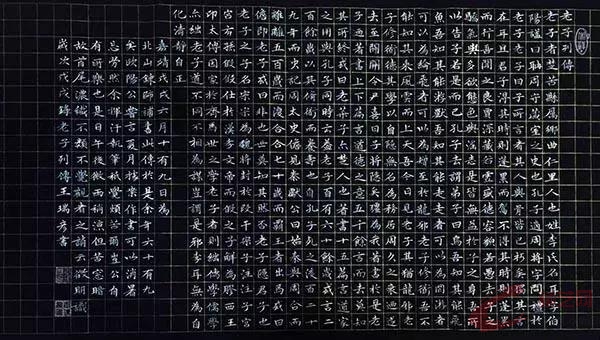 老子列傳
老子者楚苦縣厲鄉曲仁里人也姓李氏名耳字伯
陽諡曰聃周守藏室之史也孔子適周將問禮於
老子老子曰子所言者其人與骨皆已朽矣獨其言
在耳且君子得其時則駕不得其時則蓬累
而行吾聞之良賈深藏若虛君子盛德容貌若愚去子之
驕氣與多欲態色與淫志是皆無益於子之身吾所
以告子若是而已孔子去謂弟子曰鳥吾知其能飛
魚吾知其能游獸吾知其能走至於龍吾不
能知其乘風雲而上天吾今日見老子其猶龍邪老子脩道
德其學以自隱無名為務居周久之見周之衰迺遂
去至關關令尹喜曰子將隱矣彊為我著書於是老
子迺著書上下篇言道德之意五千餘言而去莫知
其所終或曰老萊子亦楚人也著書十五篇言道家
之用與孔子同時云蓋老子百有六十餘歲或言二
百餘歲以其脩道而養壽也自孔子死之後百二十
九年而史記周太史儋見秦獻公曰始秦與周合而
離離五百歲而復合合七十歲而霸王者出焉或曰
儋即老子或曰非也世莫知其然否老子隱君子也
老子之子名宗宗為魏將封於段干宗子注注子宮
宮玄孫假假仕於漢孝文帝而假之子解為膠西王
卬太傅因家于齊焉世之學老子者則絀儒學儒學
亦絀老子道不同不相為謀豈謂是邪李耳無為自
化清靜自正
嘉靖戊戌六月十有九日為
北山鍊師補書此傳於是余年六十有九
矣歐陽公嘗言夏月據案作書可以消暑
忘勞然余揮汗執筆祗覺煩苦豈公自
有所樂耶是日午後微雨稍涼但苦室暗
故首尾濃纖不類觀者之誚云徵明識
歲次戊戌錄老子列傳王瑞彥書